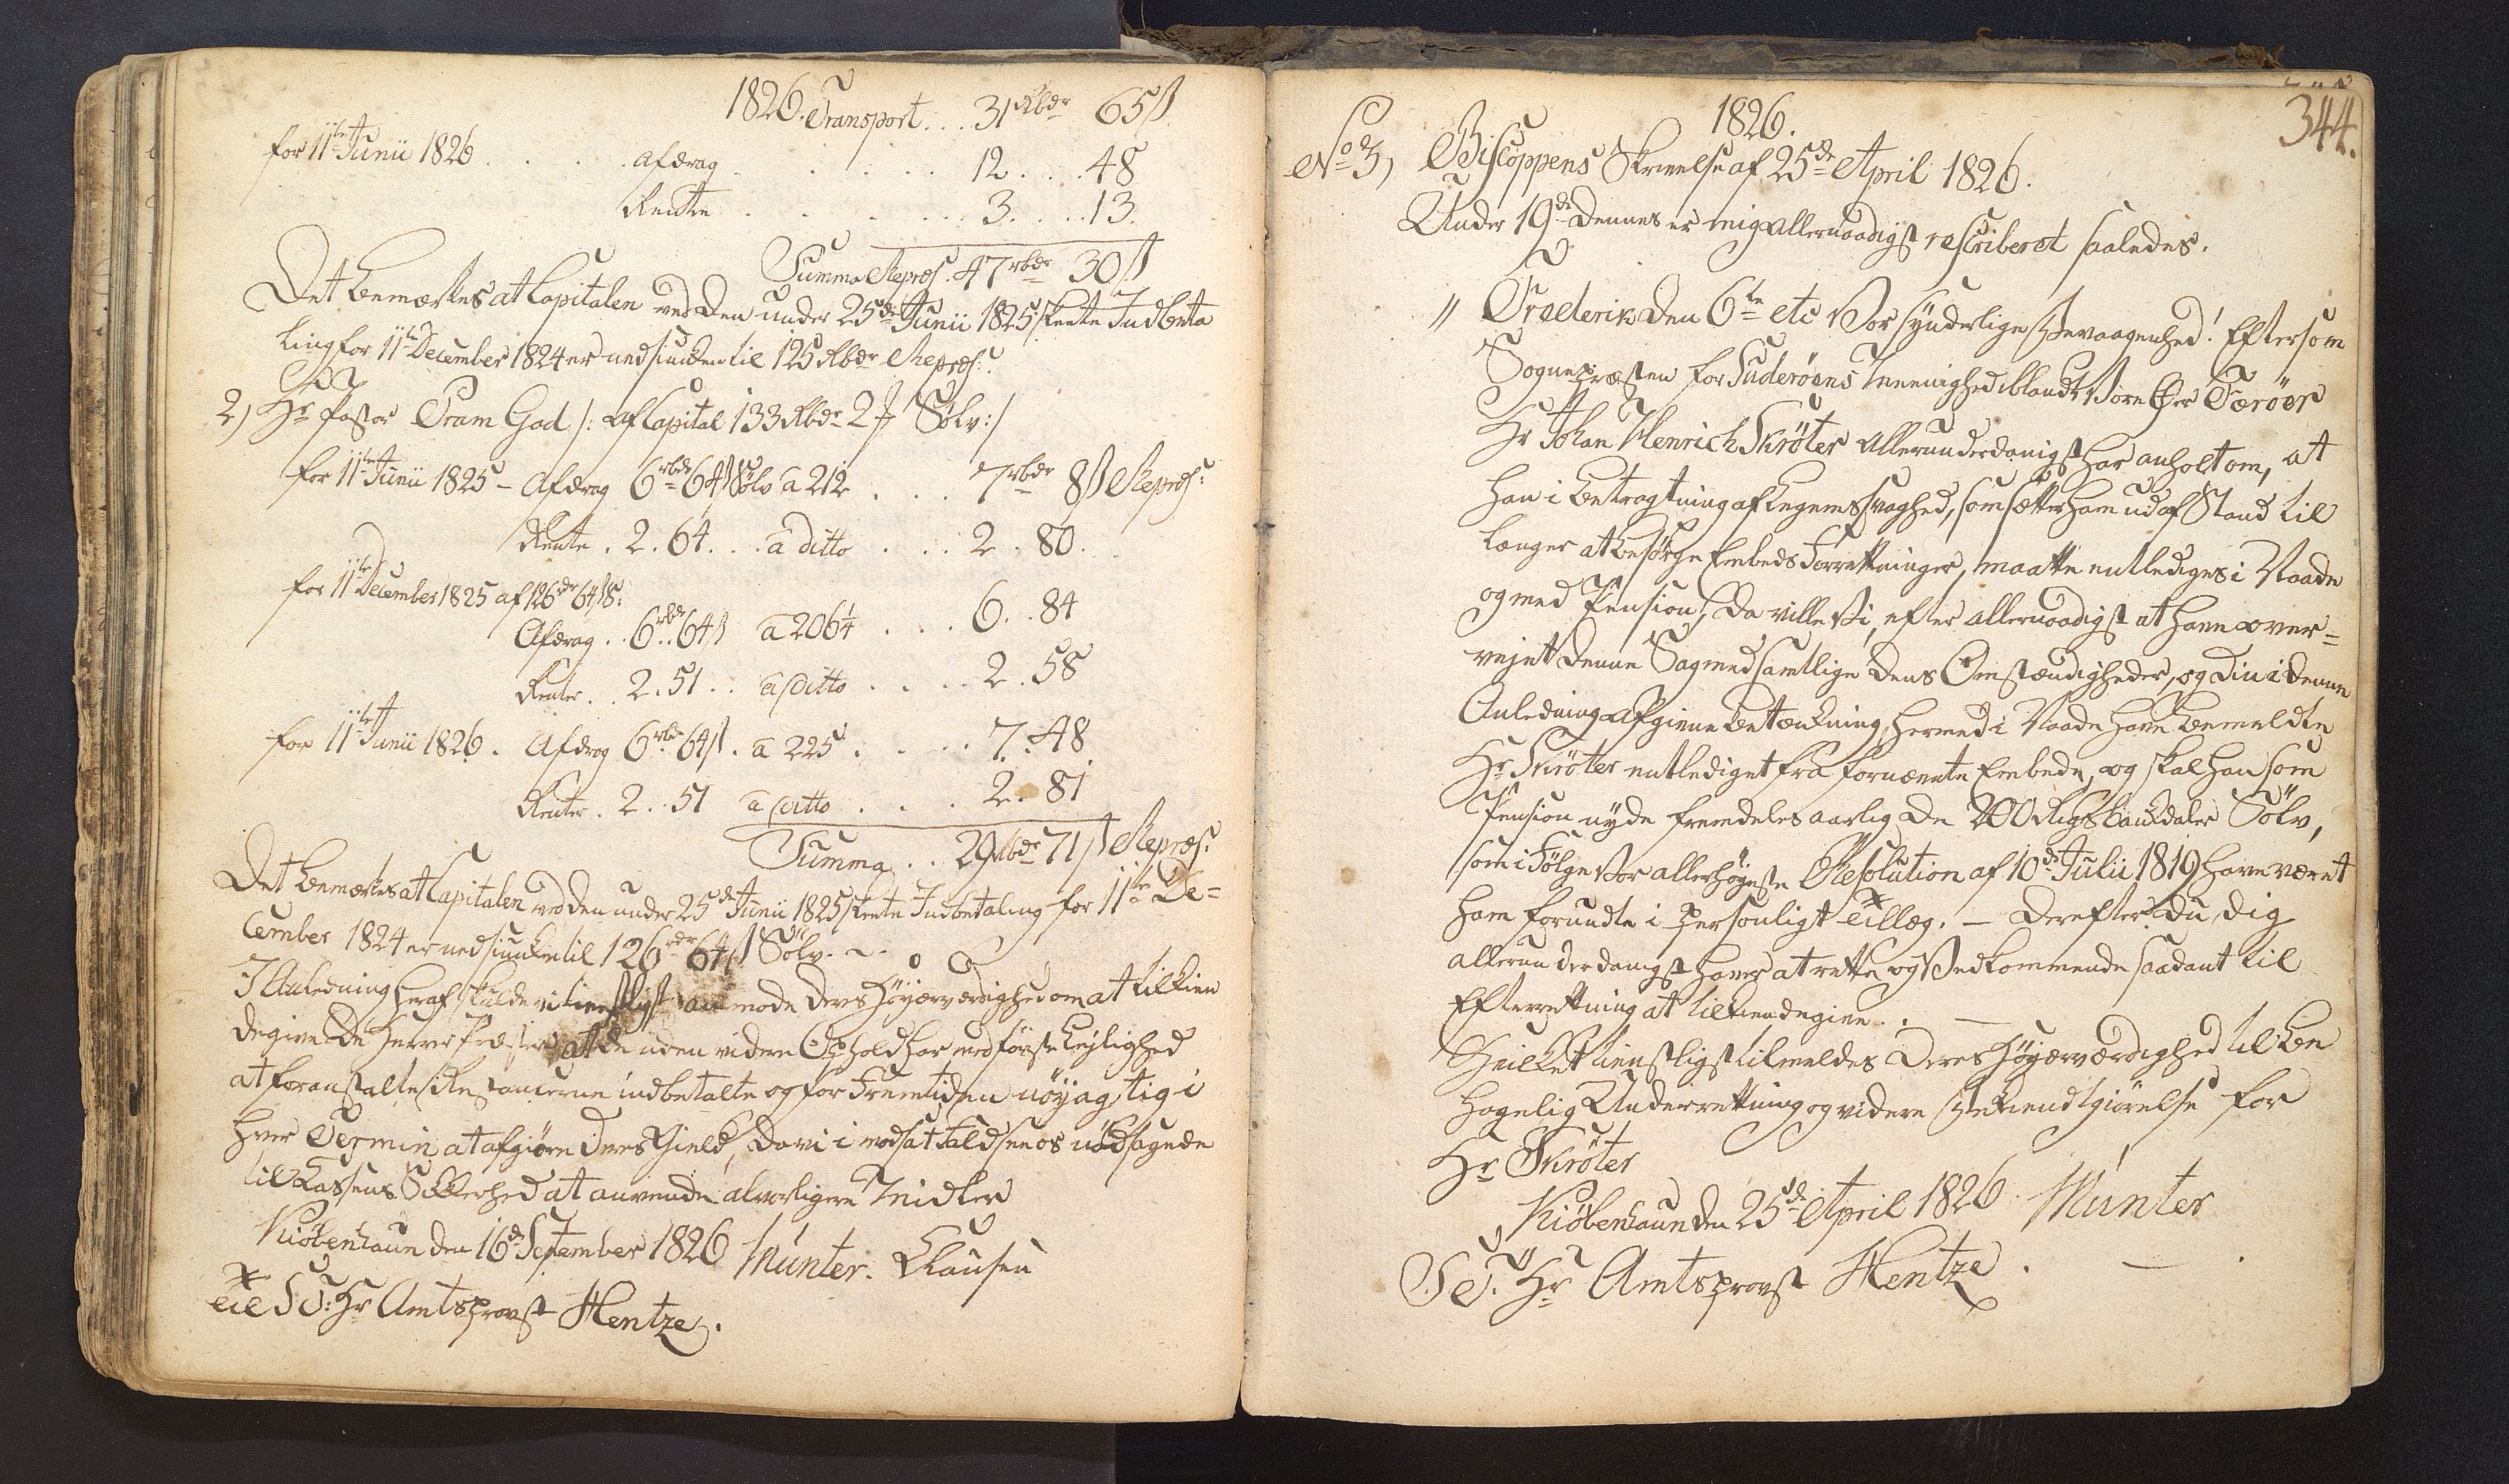 1826. Transport... 31 Rbdr 65 ß.
for 11te Junii 1826 . . . . Afdrag . . . . . . 12 . . . 48
Rente . . . . . . 3 . . . 13.
Summa Repræs. 47 rbdr 30 ß
Det bemærkes at Capitalen ved den under 25de Junii 1825 skeete Indbeta
ling for 11te December 1824 er nedsiunken til 125 Rbdr Repræs:
2) Hr Pastor Gram Gad /: af Capital 133 Rbdr 2 ℳ Sølv :/
for 11te Junii 1825 - Afdrag 6 rbdr 64 ß Sølv a 212 . . . 7 rbdr 8 ß Repræs:
Rente . 2 . 64 . . . a ditto . . . 2 . 80.
for 11te December 1825 af 126 dr 64 ß S:
Afdrag . . 6 rbdr 64 ß a 206¼ . . . 6 . . 84
Renter . . 2 . 51 . . a ditto . . . . 2 . 58
for 11te Junii 1826 . Afdrag 6 rbdr 64 ß . a 225 . . . . 7 . 48
Renter . 2 . . 51 a ditto . . . . 2 . 81
Summa . . 29 Rbdr 71 ß Repræs:
Det bemærkes at Capitalen ved den under 25de Junii 1825 skeete Indbetaling for 11te De=
cember 1824 er nedsiunken til 126 rdr 64 ß Sølv. ~
I Anledning heraf skulde vi tienstligst anmode Deres Høyærværdighed om at tilkien
degive de Herrer Præster at de uden videre Ophold har med første Leylighed
at foranstalte Restancerne indbetalte og for Fremtiden nøyagtig i
hver Termin at afgiøre Deres Gield, da vi i modsat Fald see os nødsagede
til Kassens Sikkerhed at anvende alvorligere Midler
Kiøbenhavn den 16de September 1826 Münter. Clausen
Til S: T: Hr Amtsprovst Hentze.
344.
1826.
No 3) Biscoppens Skrivelse af 25de April 1826.
Under 19de dennes er mig allernaadigst rescriberet saaledes.
" Frederik den 6te etc Vor synderlige Bevaagenhed! Eftersom
Sognepræsten for Suderöens Menighed iblandt Vore Eyer Færöer
Hr Johan Henrich Skröter allerunderdanigst har anholt om, at
han i Betragtning af Legems svaghed, som sætter ham ud af Stand til
længer at besörge Embeds Forretninger, maatte entlediges i Naade
og med Pension; Da ville Vi, efter allernaadigst at have over=
vejet denne Sag med samtlige dens Omstændigheder, og din i denne
Anledning afgivne Betænkning, hermed i Naade have bemeldte
Hr Skröter entlediget fra fornævnte Embede, og skal han som
Pension nyde fremdeles aarlig de 200 Rigsbankdaler Sölv,
som i Fölge Vor allerhöyeste Resolution af 10de Julii 1819 have været
ham forundte i personligt Tillæg. — Derefter du dig
allerunderdanigst haver at rette og Vedkommende saadant til
Efterretning at tilkiendegive . . —
Hvilket tienstligst tilmeldes Deres Höyærværdighed til be
hagelig Underretning og videre Bekiendtgiörelse for
Hr Skröter
Kiöbenhavn den 25de April 1826 Münter
S: T. Hr Amtsprovst Hentze .